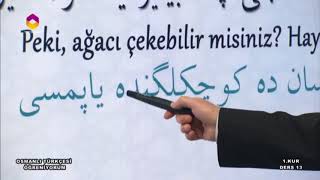 Peki, ağacı çekebilir misiniz? Hay
سان ده كوچكلگنده ياپمسى
OSMANLI TÜRKÇESİ
ÖĞRENİYORUM
1.KUR
DERS 13